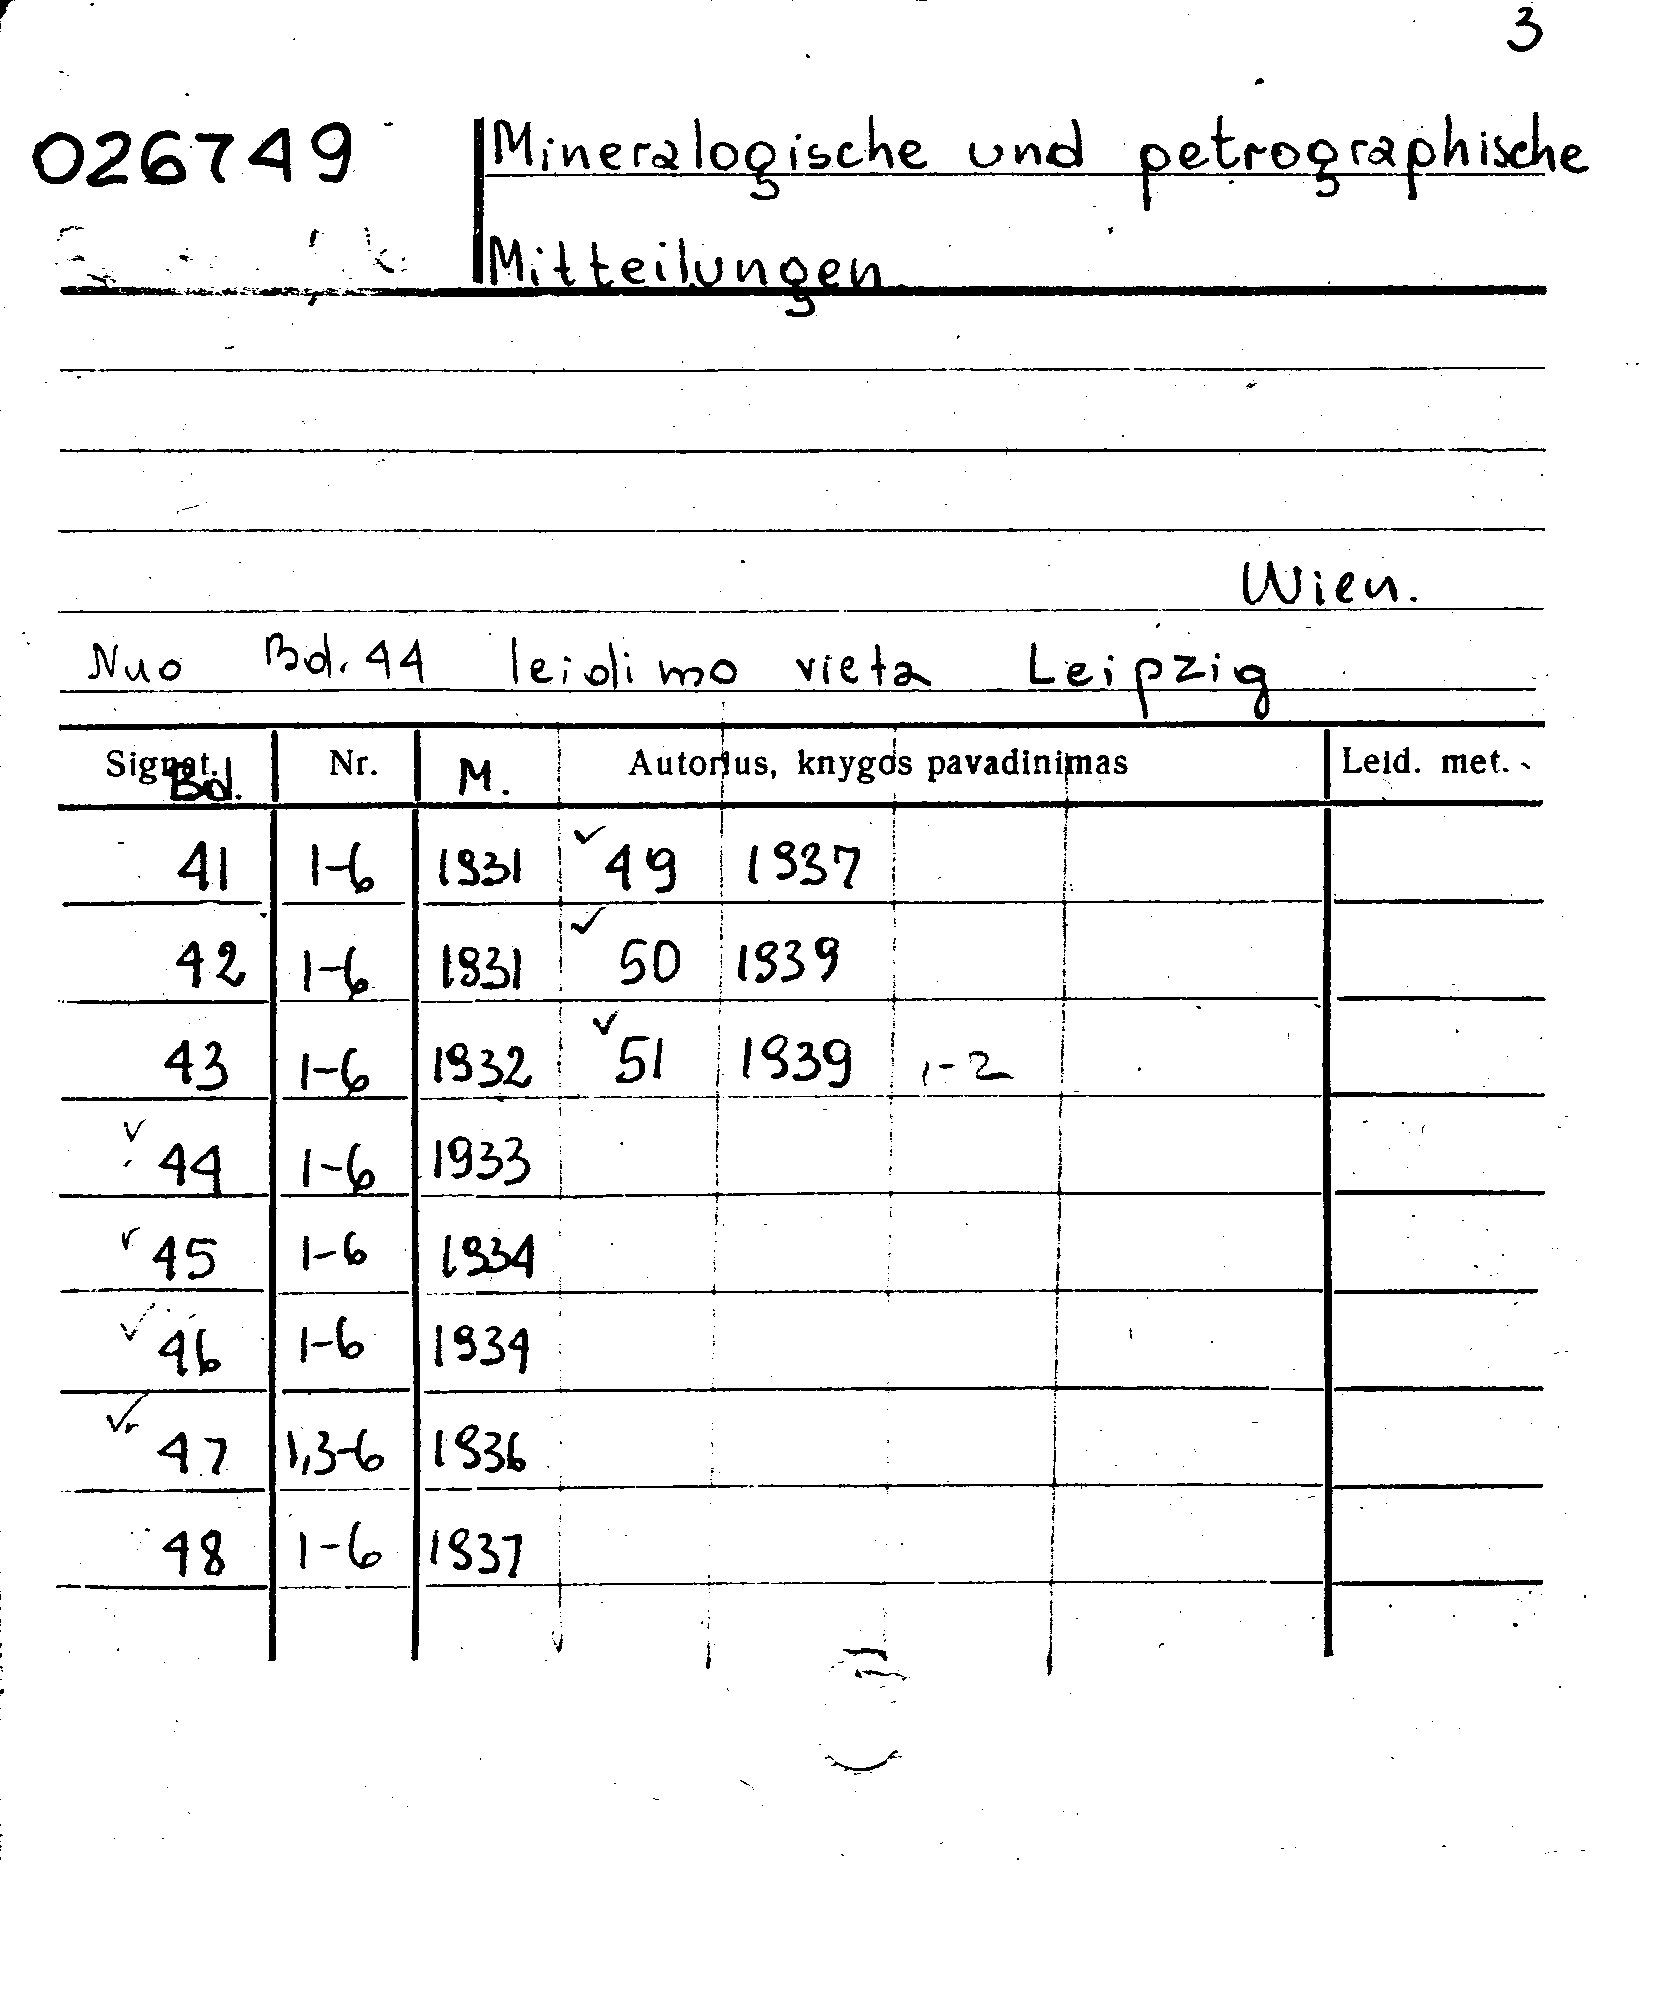 3
026749 Mineralogische und petrographische
Mitteilungen
Wien.
Nuo Bd. 44 leidimo vieta Leipzig
Signat. Nr. Autorius, knygos pavadinimas Leid. met.
Bd. M.
41 1-6 1931 ✓ 49 1937
42 1-6 1931 ✓ 50 1939
43 1-6 1932 ✓ 51 1939 1-2
✓ 44 1-6 1933
✓ 45 1-6 1934
✓ 46 1-6 1934
✓ 47 1,3-6 1936
48 1-6 1937